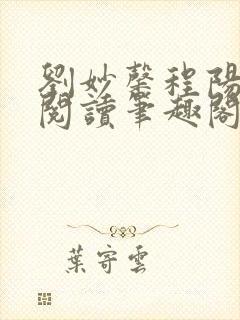 劉妙馨程陽
閱讀筆趣閣
葉寄雲